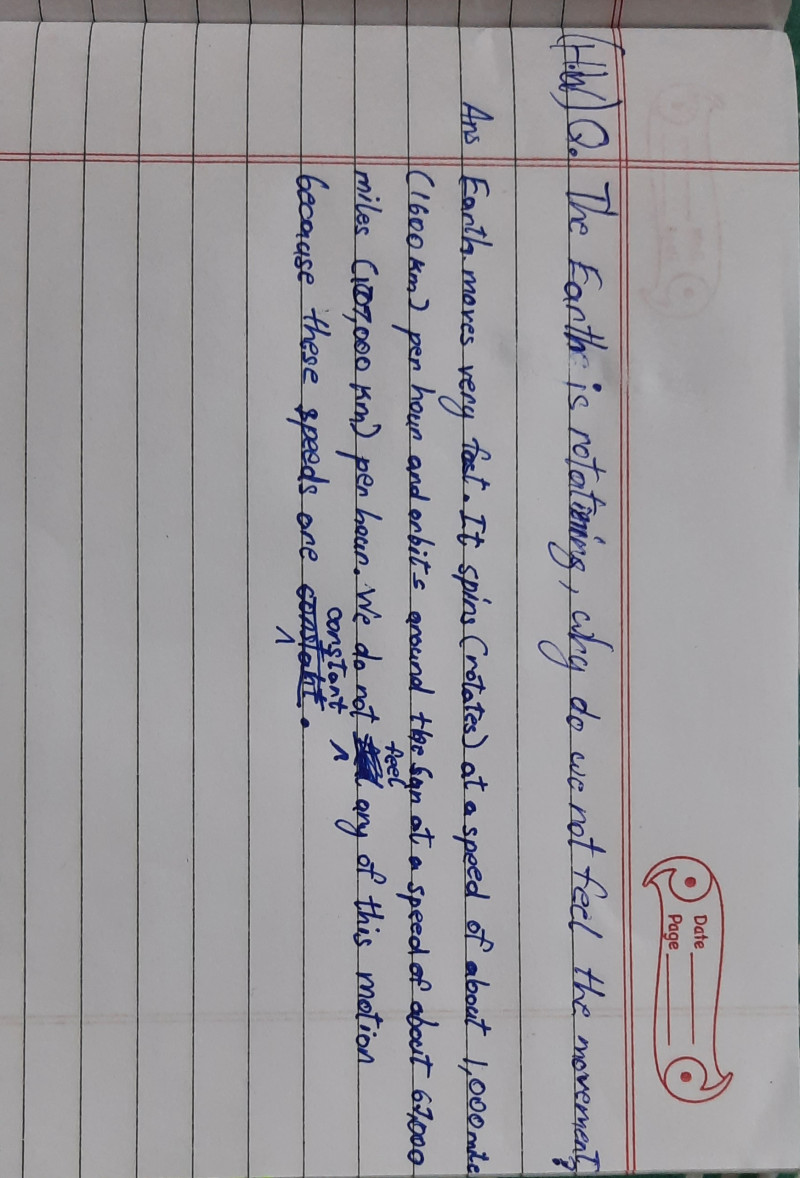 Date
Page
(H.W) Q. The Earth is rotating, why do we not feel the movement?
Ans Earth moves very fast. It spins (rotates) at a speed of about 1,000 mile
(1600 km) per hour and orbits around the Sun at a speed of about 67,000
miles (107,000 km) per hour. We do not feel any of this motion
because these speeds are constant.